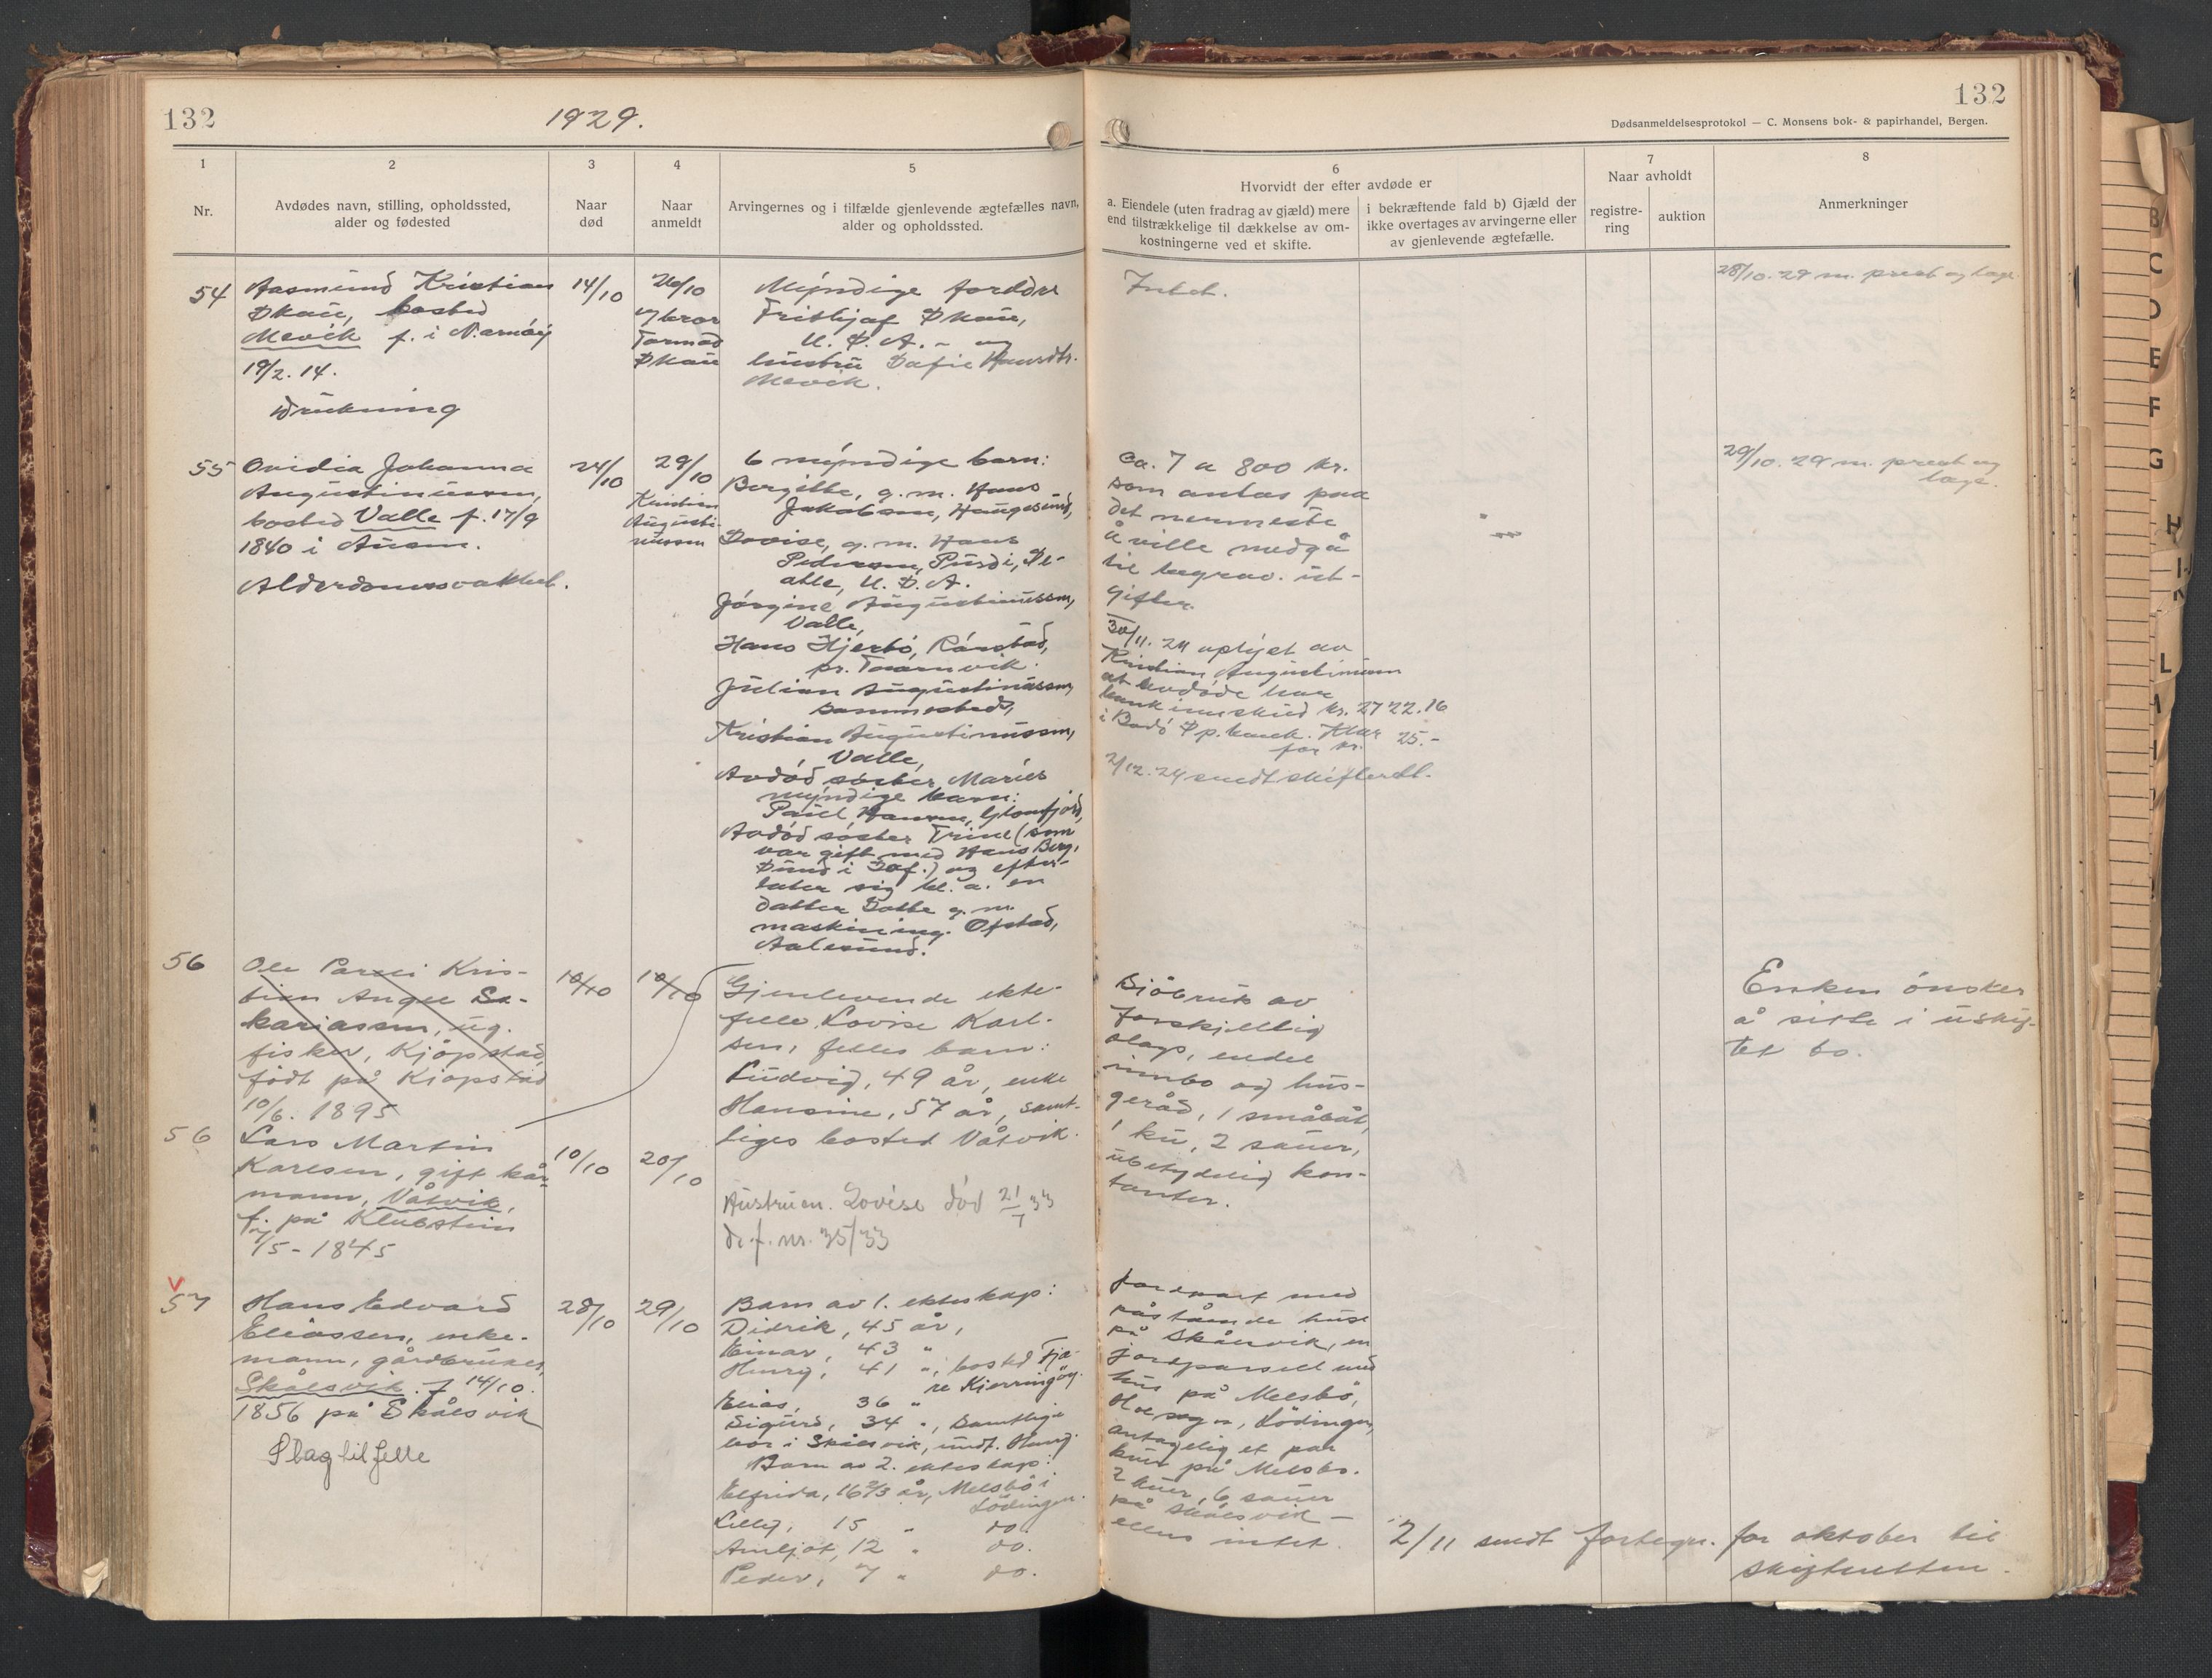 132
1929.
132
Dødsanmeldelsesprotokol — C. Monsens bok- & papirhandel, Bergen.
1
Nr.
2
Avdødes navn, stilling, opholdssted,
alder og fødested
3
Naar
død
4
Naar
anmeldt
5
Arvingernes og i tilfælde gjenlevende ægtefælles navn,
alder og opholdssted.
6
Hvorvidt der efter avdøde er
a. Eiendele (uten fradrag av gjæld) mere
end tilstrækkelige til dækkelse av om-
kostningerne ved et skifte.
i bekræftende fald b) Gjæld der
ikke overtages av arvingerne eller
av gjenlevende ægtefælle.
7
Naar avholdt
registre-
ring
auktion
8
Anmerkninger
54
Aasmund Kristian
Skau, bosted
Mevik f. i N.arnøy
19/2. 14.
Drukning
14/10
26/10
v/ bror
Tormod
Skau
Myndige foreldre
Frithjof Skau,
U. S. A. - og
hustru Dafie Hansdtr.
Mevik.
Intet.
28/10. 29 m. prest og lage.
55
Ovidia Johanna
Augustinussen,
bosted Valle f. 17/9
1840 i
Alderdomssvakhet.
24/10
29/10
Kristian
Augusti-
nussen
6 myndige barn:
Bergitte, g. m. Hans
Jakobsen, Haugesund,
Lovise, g. m. Hans
Pedersen,
U. S. A.
Jørgine Augustinussen,
Valle,
Hans Hjertø,
pr.
Julian Augustinussen,
sammesteds,
Kristian Augustinussen,
Valle,
Avdød søster Maries
myndige barn:
Paul Hansen, Glomfjord,
Avdød søster Trine (som
var gift med Hans Berg,
Sund i ) og efter-
later sig bl. a. en
datter g. m.
maskining. Ofstad,
Aalesund.
Ca. 7 a 800 kr.
som antas paa
det nermeste
å ville medgå
til begrav. ut-
gifter.
30/11. 29 oplyst av
Kristian Augustinussen
at avdøde har
bankinnskud kr. 2722.16
i Bodø Sp.bank. Klær
for kr. 25.-
2/12. 29 sendt skifterett.
29/10. 29 m. prest og
lage.
56
Ole Parsei Kris-
tian Angel Sa-
kariassen, ug.
fisker, Kjøpstad,
født på Kjøpstad
10/6. 1895
10/10
10/10
56
Lars Martin
Karlsen, gift kår-
mann, Våtvik,
f. på Klubstein
1/5 - 1845
10/10
20/10
Gjenlevende ekte-
felle Lovise Karl-
sen, felles barn:
Ludvig, 49 år, enke
Hansine, 57 år, samt-
liges bosted Våtvik.
Hustruen. Lovise død 21/7 33
d. f. nr. 35/33
Sjøbruk av
forskjellig
slags, endel
innbo og hus-
geråd, 1 småbåt,
1 ku, 2 sauer,
ubetydelig kon-
tanter.
Enken ønsker
å sitte i uskif-
tet bo.
V
57
Hans Edvard
Eliassen, enke-
mann, gårdbruker,
Skålsvik. f 14/10.
1856 på Skålsvik
Slagtilfelle
28/10
29/10
Barn av 1. ekteskap:
Didrik, 45 år,
Einar, 43 "
Henry, 41 ", bosted Fjæ-
re Kjerringøy.
Elias, 36 "
Sigurd, 34 ", samtlige
bor i Skålsvik, undt. Henry.
Barn av 2. ekteskap:
Elfrida, 16 2/3 år, Melsbø i
Lødingen.
Lilly, 15 " do.
Arnljot, 12 " do.
Peder, 7 " do.
Jordpart med
påstående huse
på Skålsvik, en
jordparsell med
hus på Melsbø,
Hol sogn, Lødingen,
antagelig et par
kuer på Melsbø.
2 kuer, 6 sauer
på Skålsvik —
ellers intet.
2/11 sendt fortegn. for oktober til
skifteretten.
B
C
D
E
F
G
H
L